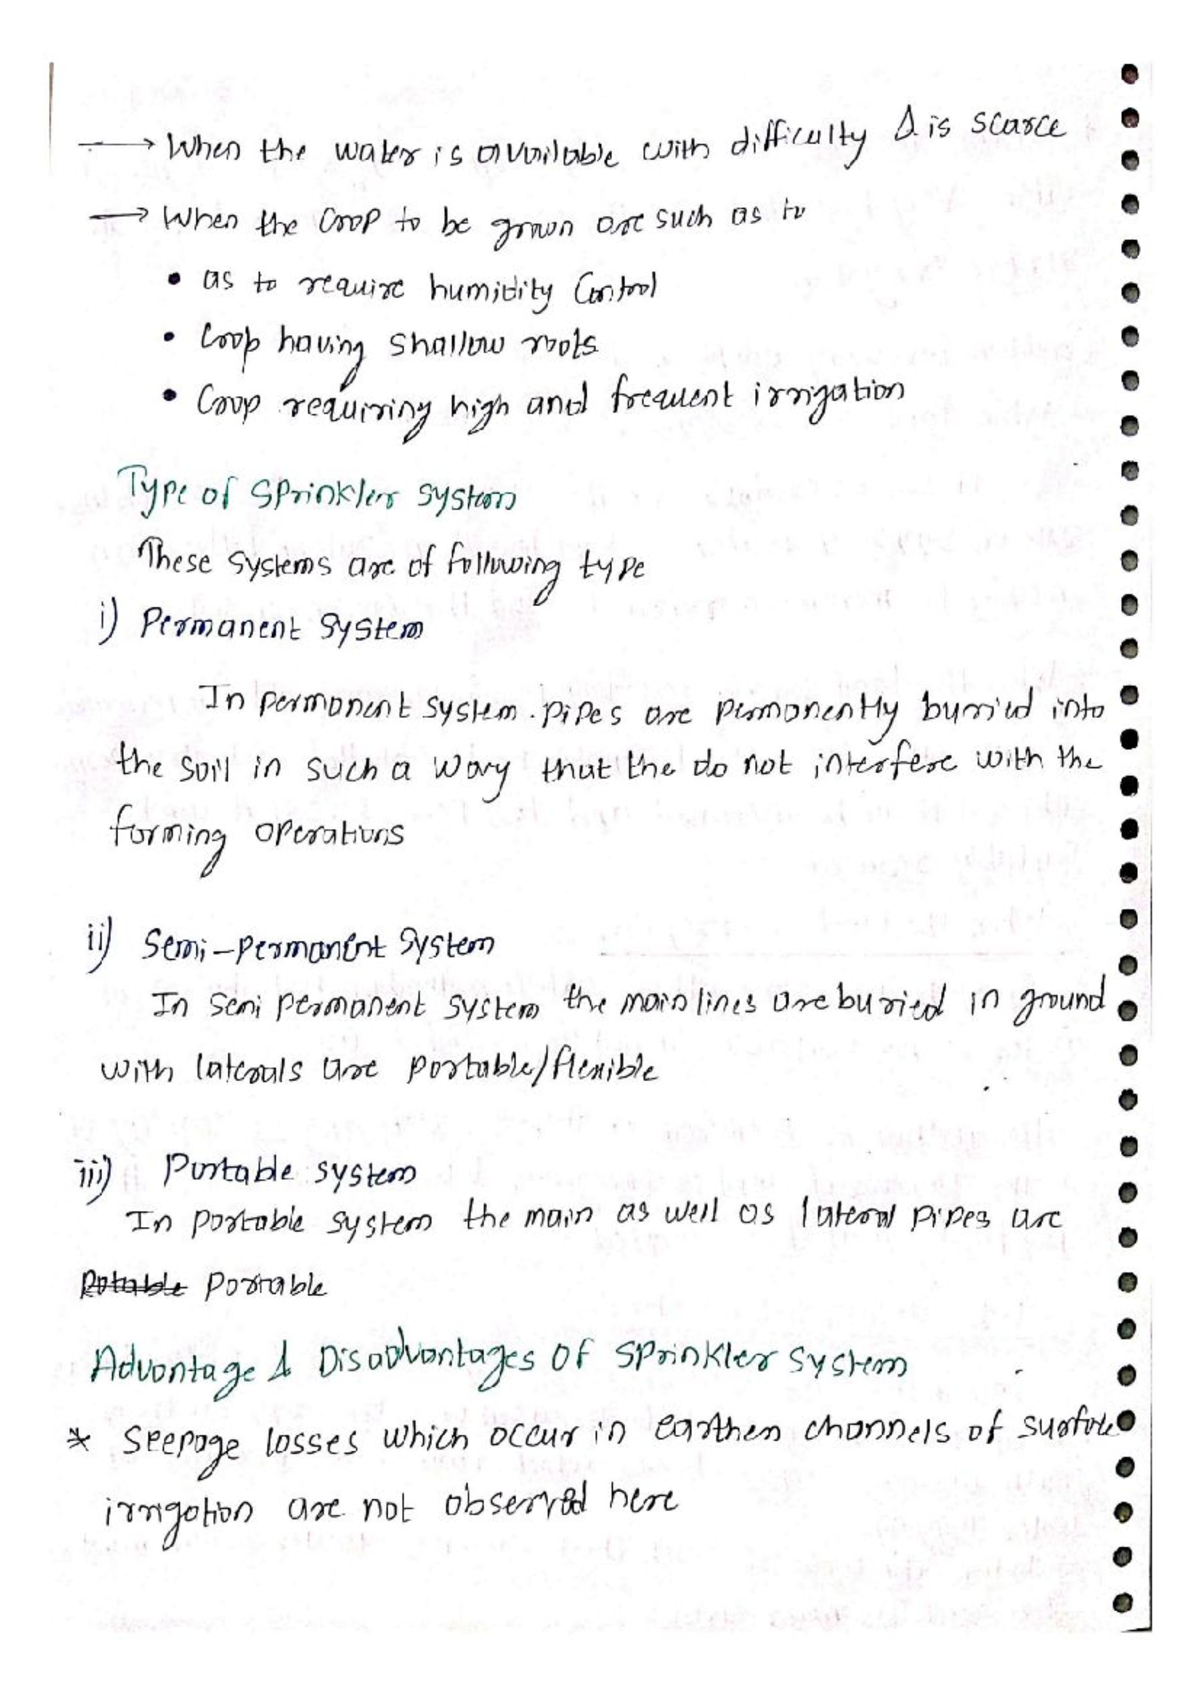 → When the water is available with difficulty & is scarce
→ When the Crop to be grown are such as to
• as to require humidity Control
• Crop having shallow roots
• Crop requiring high and frequent irrigation
Type of Sprinkler system
These Systems are of following type
i) Permanent System
In permanent system. pipes are permanently burried into
the soil in such a way that the do not interfere with the
farming operations
ii) Semi-permanent System
In semi permanent system the main lines are buried in ground
with laterals are portable/flexible
iii) Portable system
In portable system the main as well as lateral pipes are
Potable Portable
Advantage & Disadvantages of Sprinkler system
* Seepage losses which occur in earthen channels of surface
irrigation are not observed here